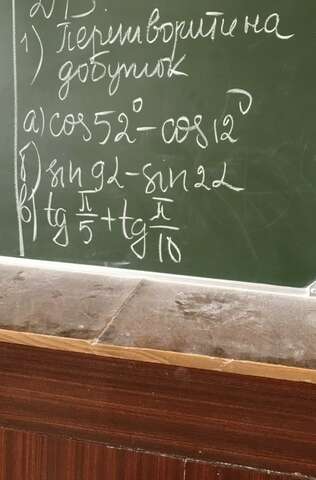 Д/З.
1) Перетворити на
добуток
а) cos 52° - cos 12°
б) sin 9α - sin 2α
в) tg π/5 + tg π/10